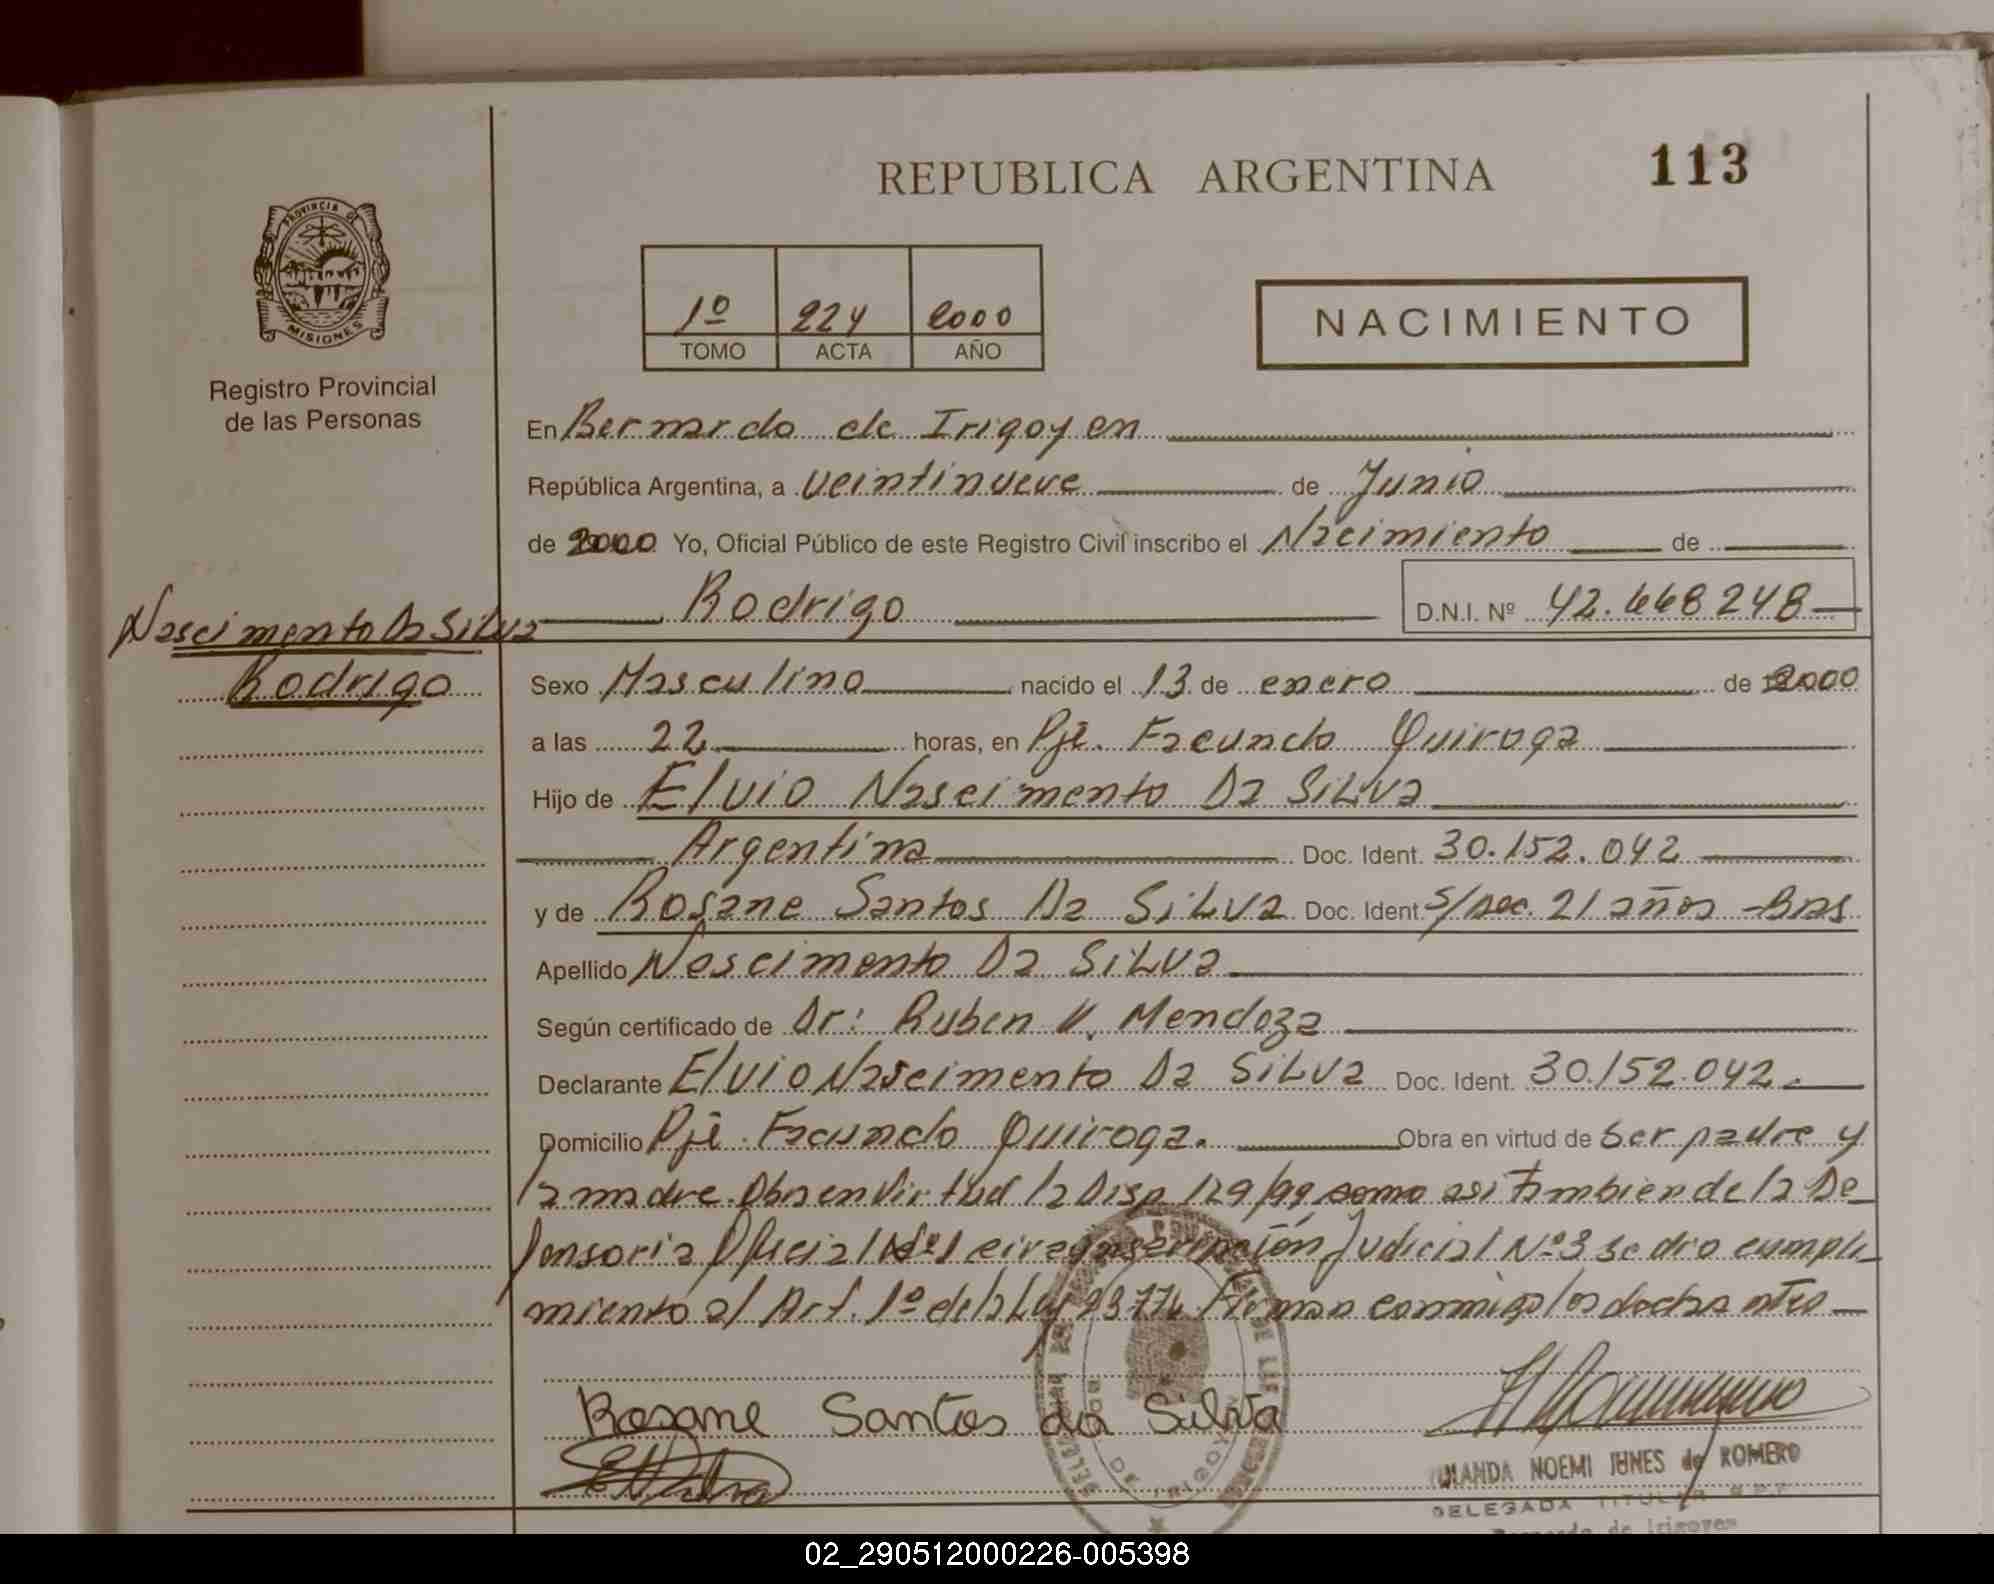 REPUBLICA ARGENTINA
113
PROVINCIA DE
MISIONES
Registro Provincial
de las Personas
1º 224 2000
TOMO ACTA AÑO
NACIMIENTO
En Bernardo de Irigoyen
República Argentina, a veintinueve de Junio
de 2000 Yo, Oficial Público de este Registro Civil inscribo el Nacimiento de
Rodrigo D.N.I. Nº 42.668248
Nascimento Da SiLva
Rodrigo
Sexo Masculino nacido el 13 de enero de 2000
a las 22 horas, en Pje. Facundo Quiroga
Hijo de Elvio Nascimento Da SiLva
Argentina Doc. Ident. 30.152.042
y de Rosane Santos Da SiLva Doc. Ident. S/doc. 21 años -Bras
Apellido Nascimento Da SiLva
Según certificado de Dr: Ruben V. Mendoza
Declarante Elvio Nascimento Da SiLva Doc. Ident. 30.152.042.
Domicilio Pje. Facundo Quiroga. Obra en virtud de Ser padre y
la madre. Obra en Virtud la Disp 129/99 como asi tambien de la De_
fensoria Oficial Nº1 circunscripción Judicial Nº3 se dio cumpli_
miento al Art. 1º de la Ley Firman conmigo los
Rosane Santos da Silva
NOEMI JUNES de ROMERO
DELEGADA TITULAR
Bernardo de Irigoyen
DE IRIGOYEN
02_290512000226-005398